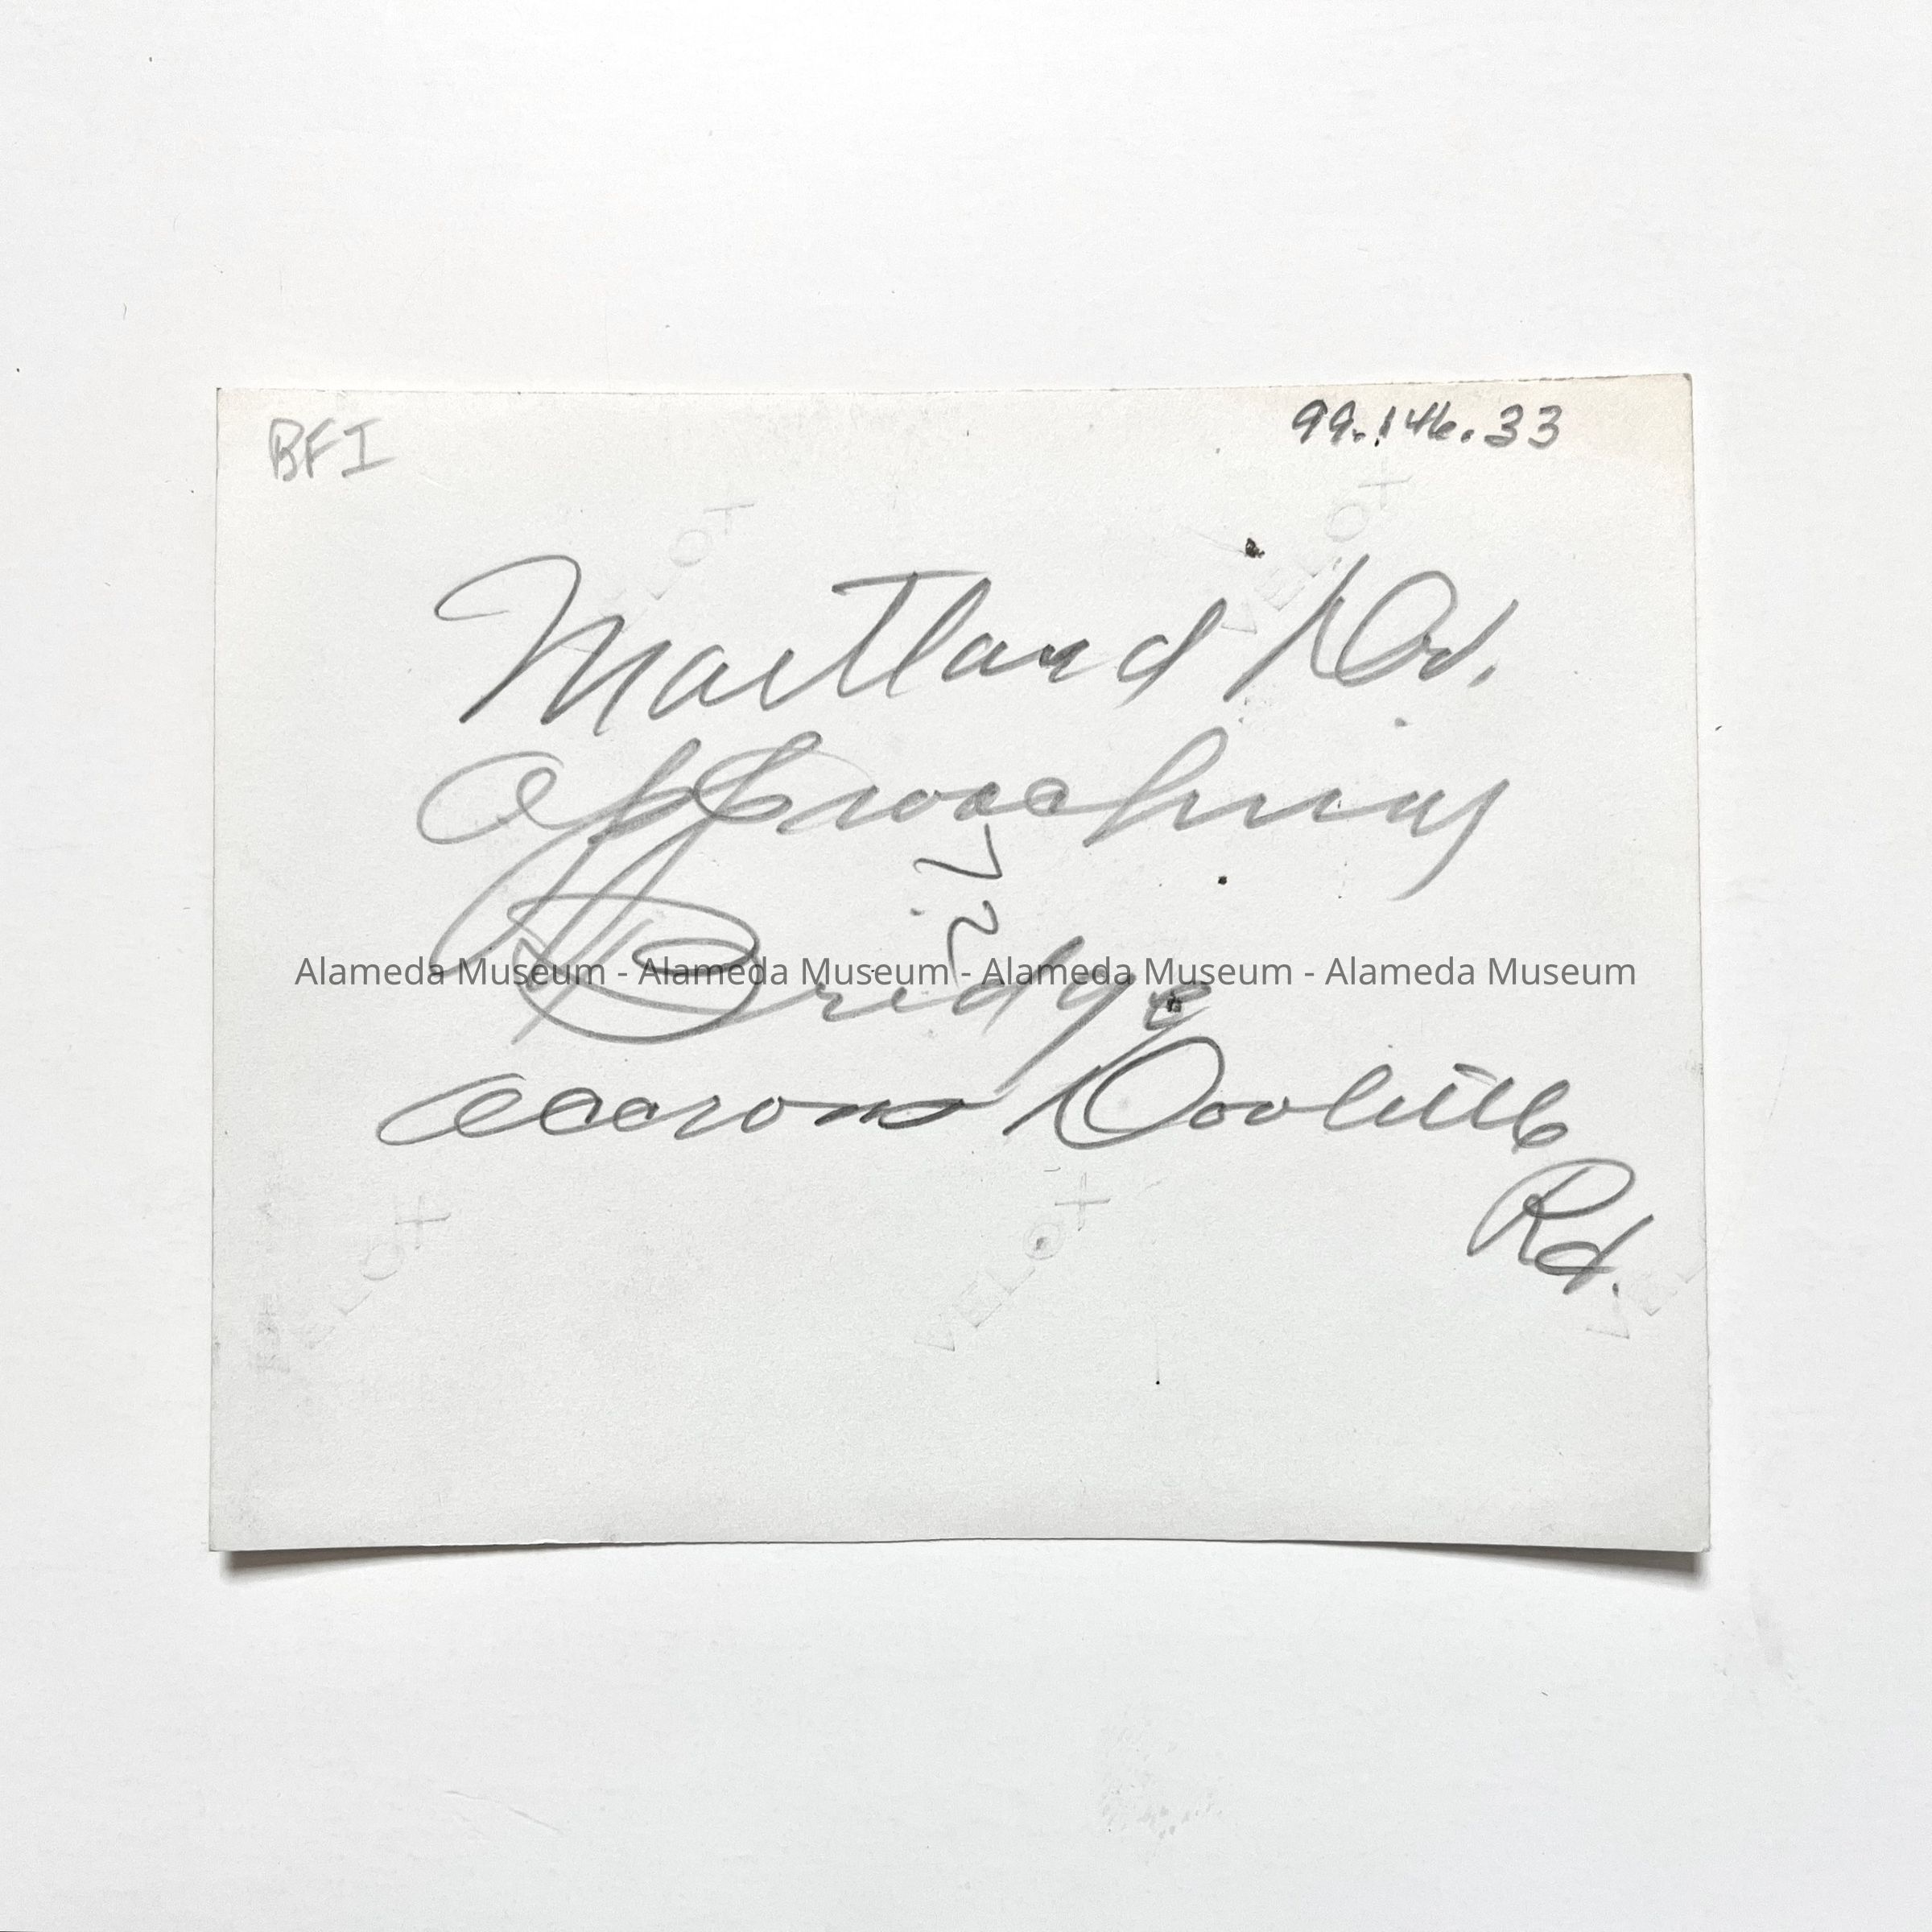 BFI
99.146.33
VELOX VELOX
Maitland Dr.
approaching
Bridge
Alameda Museum - Alameda Museum - Alameda Museum - Alameda Museum
accross Doolittle
Rd.
VELOX VELOX VEL